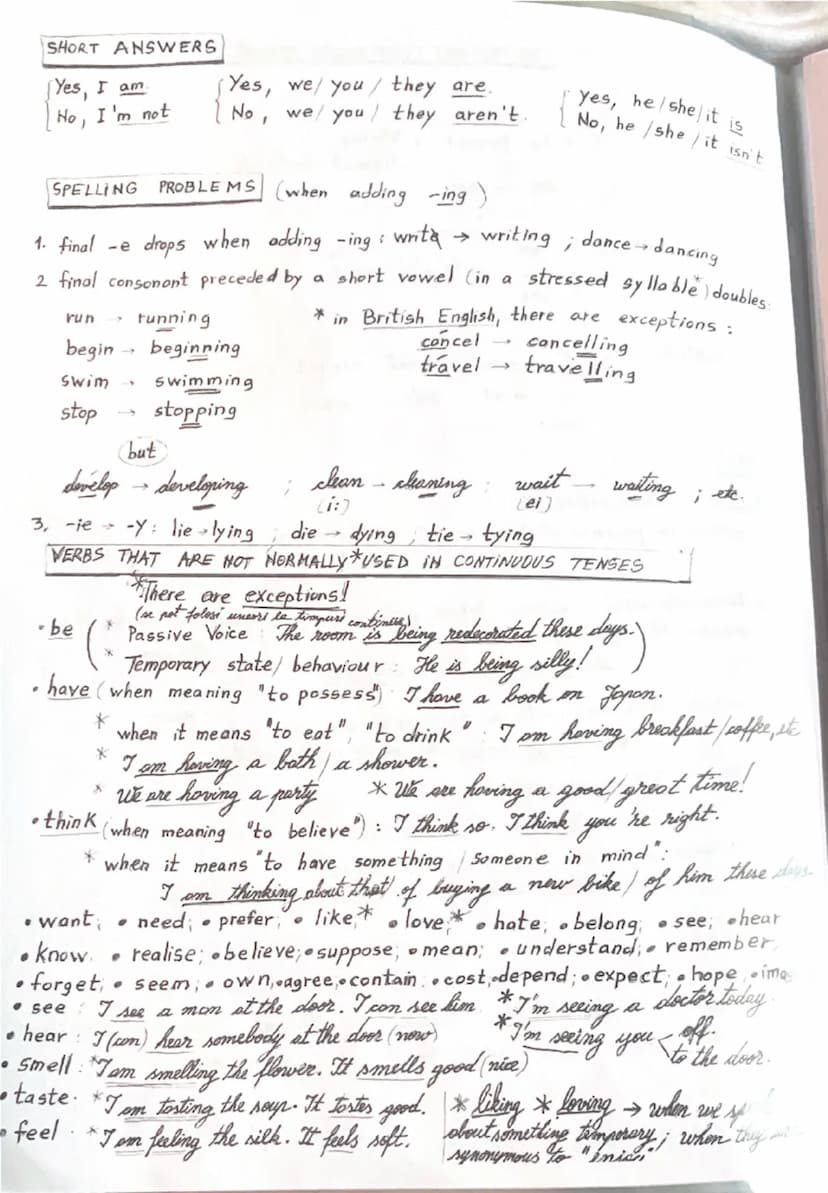 SHORT ANSWERS
Yes, I am.
No, I'm not
Yes, we/ you / they are.
No, we / you / they aren't.
Yes, he/she/it is
No, he /she / it isn't
SPELLING PROBLEMS (when adding -ing)
1. final -e drops when adding -ing : write → writing ; dance → dancing
2 final consonant preceded by a short vowel (in a stressed syllable*) doubles:
run → running
begin → beginning
swim → swimming
stop → stopping
* in British English, there are exceptions :
cancel → cancelling
travel → travelling
but
develop → developing ; clean → cleaning ; wait → waiting ; etc.
(i:) (ei)
3. -ie → -y : lie → lying ; die → dying ; tie → tying
VERBS THAT ARE NOT NORMALLY* USED IN CONTINUOUS TENSES
*There are exceptions!
(se pot folosi uneori la timpuri continue)
• be ( * Passive Voice : The room is being redecorated these days.
* Temporary state/ behaviour : He is being silly! )
• have (when meaning "to possess") I have a book on Japan.
* when it means "to eat", "to drink" : I am having breakfast/coffee, etc
* I am having a bath / a shower.
* We are having a party * We are having a good/great time!
• think (when meaning "to believe") : I think so. I think you're right.
* when it means "to have something / someone in mind" :
I am thinking about that/ of buying a new bike/ of him these days.
• want; • need; • prefer; • like;* • love;* • hate; • belong; • see; • hear
• know. • realise; • believe; • suppose; • mean; • understand; • remember,
• forget; • seem; • own, • agree, • contain. • cost, • depend; • expect; • hope,
• see : I see a man at the door. I can see him. * I'm seeing a doctor today.
• hear : I (can) hear somebody at the door (now) * I'm seeing you off.
to the door.
• smell : * I am smelling the flower. It smells good (nice)
• taste. * I am tasting the soup. It tastes good.
• feel . * I am feeling the silk. It feels soft.
* liking * loving → when we
about something temporary; when they
synonymous to